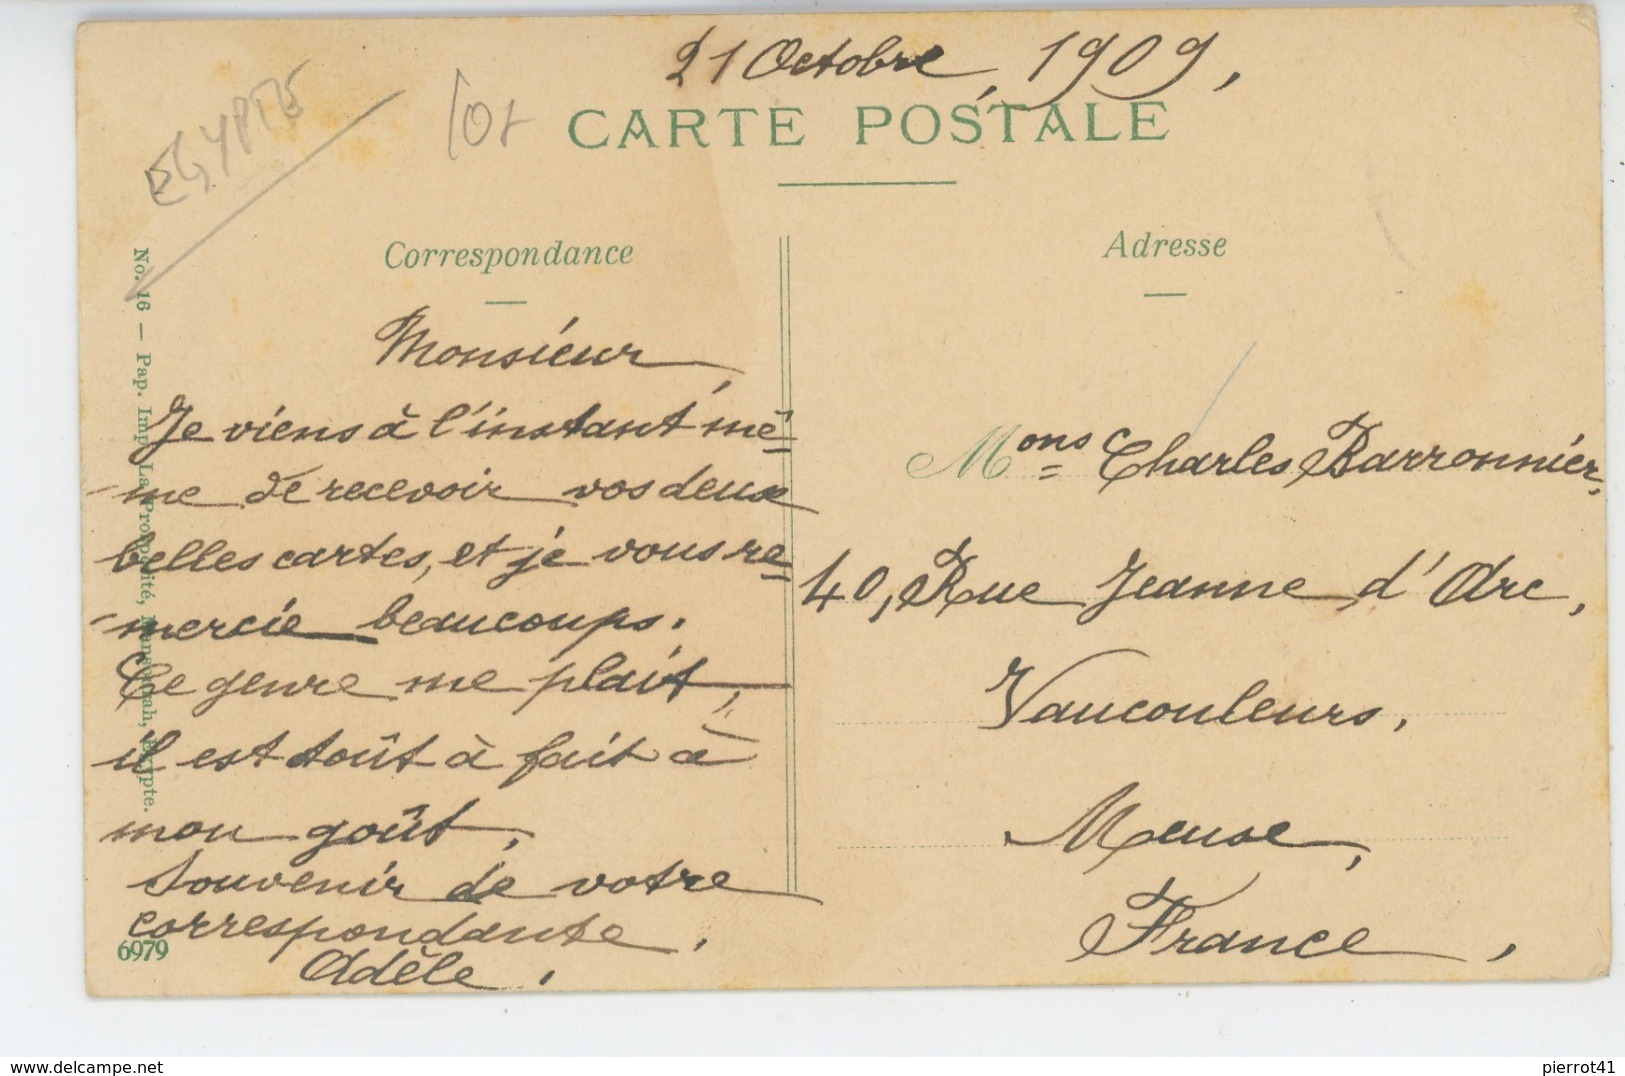 21 Octobre 1909,
EGYPTE
CARTE POSTALE
Correspondance
Monsieur,
Je viens à l'instant mê=
-me de recevoir vos deux
belles cartes, et je vous re=
-mercie beaucoups.
Ce genre me plait,
il est toût à fait à
mon goût,
Souvenir de votre
correspondante,
Adèle.
No. 16 — Pap. Imp. La Prosperité, Mansourah, Egypte.
6979
Adresse
Mons = Charles Barronnier,
40, Rue Jeanne d'Arc,
Vaucouleurs,
Meuse,
France,
pierrot41